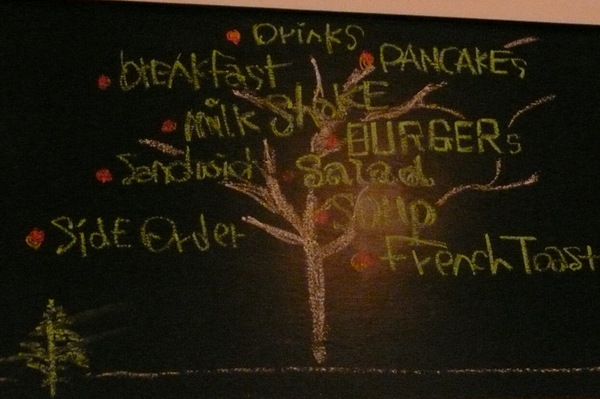 Drinks
PANCAKEs
brEAkfast
milk ShaKE
BURGERs
Sandwich
Salad
Soup
SidE Order
French Toast